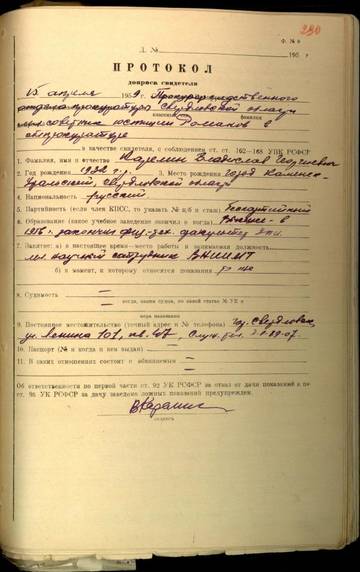 Ф. № 8
280
Д. №
195 г.
ПРОТОКОЛ
допроса свидетеля
15 апреля 1959 г. Прокурор следственного
отдела прокуратуры Свердловской области
классный чин фамилия
мл. советник юстиции Романов в
облпрокуратуре
в качестве свидетеля, с соблюдением ст. ст. 162—168 УПК РСФСР
1. Фамилия, имя и отчество Карелин Владислав Георгиевич
2. Год рождения 1932 г.р. 3. Место рождения город Каменск-
Уральский, Свердловской области
4. Национальность русский
5. Партийность (если член КПСС, то указать № п/б и стаж) беспартийный
6. Образование (какое учебное заведение закончил и когда) высшее - в
1956 г. закончил физ-тех. факультет
7. Занятие: а) в настоящее время—место работы и занимаемая должность
мл. научный сотрудник
б) в момент, к которому относятся показания то же
8. Судимость —
когда, каким судом, по какой статье УК и
мера наказания
9. Постоянное местожительство (точный адрес и № телефона) гор. Свердловск,
ул. Ленина 101, кв.
10. Паспорт (№ и когда и кем выдан) —
11. В каких отношениях состоит с обвиняемым —
Об ответственности по первой части ст. 92 УК РСФСР за отказ от дачи показаний и по
ст. 95 УК РСФСР за дачу заведомо ложных показаний предупрежден.
ВКарелин
подпись